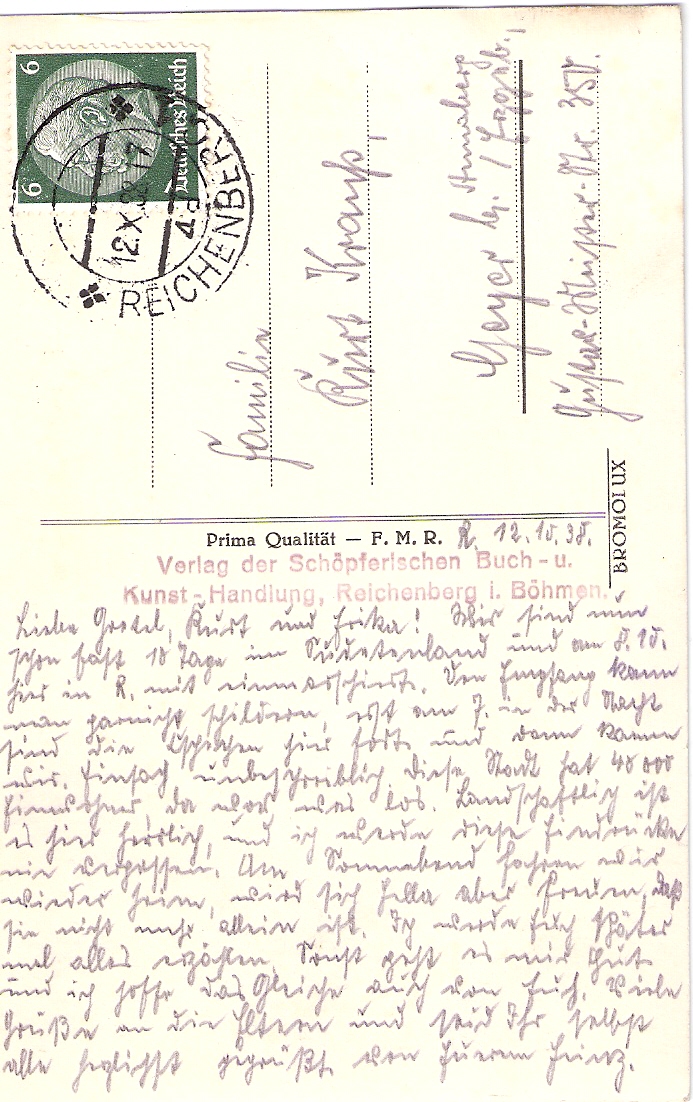 6
6
Deutsches Reich
REICHENBERG
12.X.38.-17
4a
Familie
Kurt Krauß,
Geyer b. Annaberg
/ Erzgeb.,
Gustav- -Str. 35
BROMOLUX
Prima Qualität — F. M. R.
R. 12.10.38.
Verlag der Schöpferischen Buch- u.
Kunst-Handlung, Reichenberg i. Böhmen.
Liebe Gretel, Kurt und Erika! Wir sind nun
schon fast 10 Tage im Sudetenland und am 8.10.
hier in R. mit einmarschiert. Den Empfang kann
man garnicht schildern, erst am 7. in der Nacht
sind die Tschechen hier fort und dann kamen
wir. Einfach unbeschreiblich, diese Stadt hat 40 000
Einwohner, da war was los. Landschaftlich ist
es hier herrlich, und ich werde diese Eindrücke
nie vergessen. Am Sonnabend fahren wir
wieder heim, wird sich Hella aber freuen, daß
sie nicht mehr allein ist. Ich werde Euch später
mal alles erzählen. Sonst geht es mir gut
und ich hoffe das Gleiche auch von Euch. Viele
Grüße an die Eltern und seid Ihr selbst
alle herzlichst gegrüßt von Euerm Heinz.